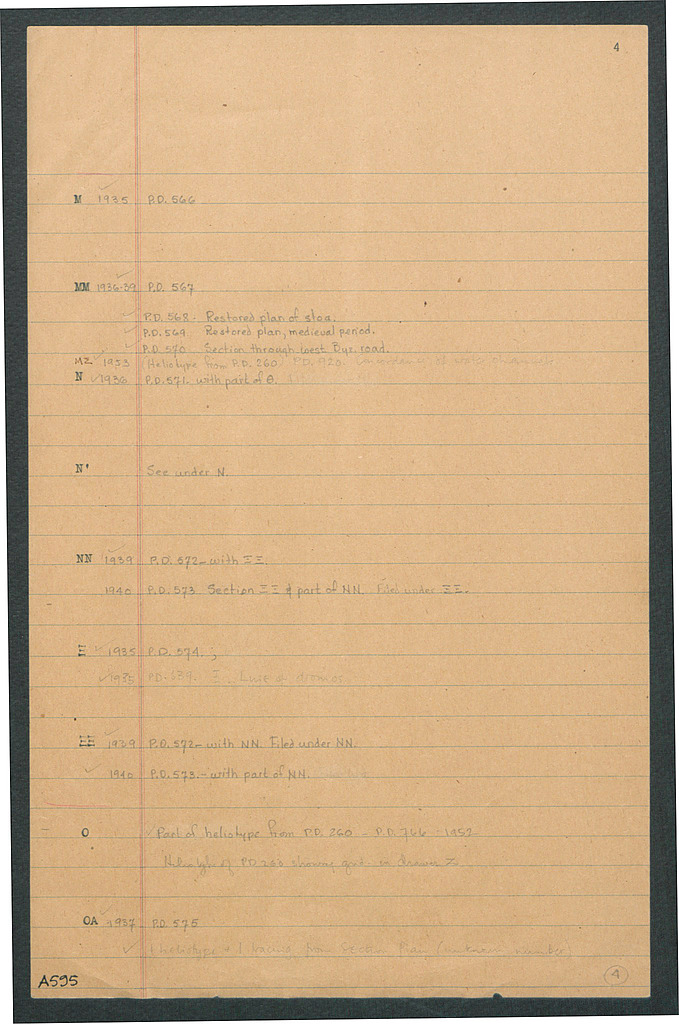 4
M 1935 P.D. 566
MM 1936-39 P.D. 567
P.D. 568. Restored plan of stoa.
P.D. 569. Restored plan, medieval period.
P.D. 570. Section through West Byz. road.
MZ 1953 (Heliotype from P.D. 260) P.D. 920.
N 1936 P.D. 571. with part of Θ.
N' See under N.
NN 1939 P.D. 572 – with ΞΞ.
1940 P.D. 573 Section ΞΞ & part of NN. Filed under ΞΞ.
Ξ 1935 P.D. 574.
1935 PD. Ξ of dromos
ΞΞ 1939 P.D. 572 – with NN. Filed under NN.
1940 P.D. 573. – with part of NN.
O Part of heliotype from P.D. 260 – P.D. 766 1952
of PD 260 showing grid in Drawer Z
OA 1937 P.D. 575
1 heliotype & 1 tracing from Section Plan (unknown number)
A595
4